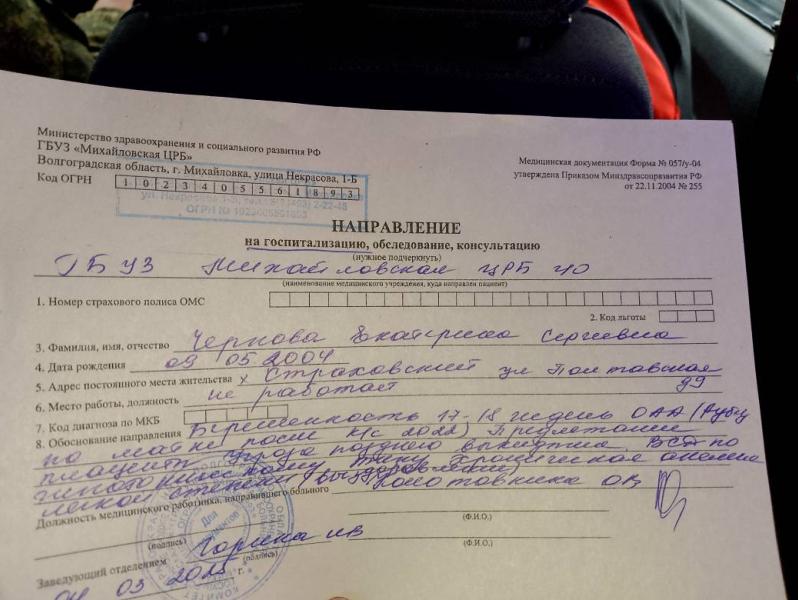 Министерство здравоохранения и социального развития РФ
ГБУЗ «Михайловская ЦРБ»
Волгоградская область, г. Михайловка, улица Некрасова, 1-Б
Код ОГРН 1 0 2 3 4 0 5 5 6 1 8 9 3
Медицинская документация Форма № 057/у-04
утверждена Приказом Минздравсоцразвития РФ
от 22.11.2004 № 255
НАПРАВЛЕНИЕ
на госпитализацию, обследование, консультацию
(нужное подчеркнуть)
ГБУЗ Михайловская ЦРБ
(наименование медицинского учреждения, куда направлен пациент)
1. Номер страхового полиса ОМС
2. Код льготы
3. Фамилия, имя, отчество Чернова Екатерина Сергеевна
4. Дата рождения 09 05 2004
5. Адрес постоянного места жительства х Страховский ул Полтавская
6. Место работы, должность не работает
7. Код диагноза по МКБ
8. Обоснование направления Беременность 17-18 недель ОАА (рубец
на матке после к/с 2022) Предлежание
плаценты угроза позднего выкидыша ВСД по
гипотоническому типу Хроническая анемия
легкой степени
Должность медицинского работника, направившего больного
(Ф.И.О.)
(подпись)
(Ф.И.О.)
Заведующий отделением
(подпись)
04 03 2025 г.